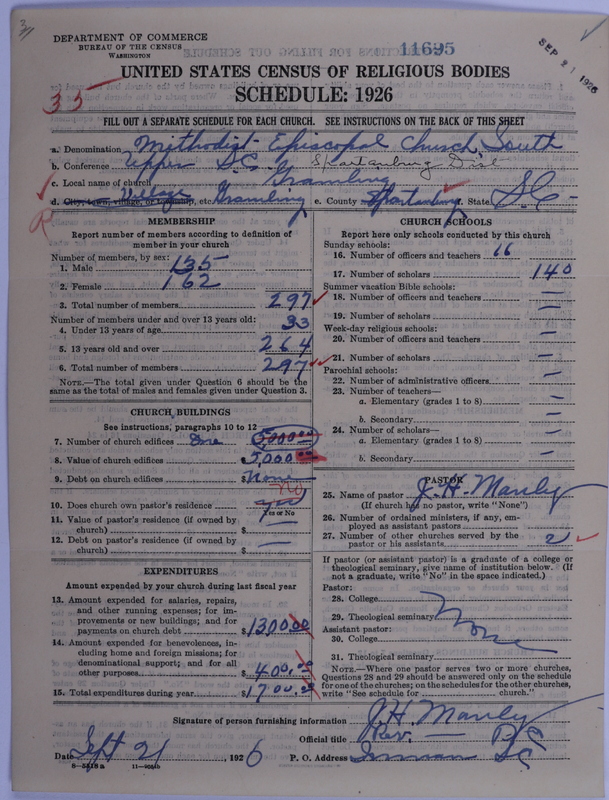 DEPARTMENT OF COMMERCE
BUREAU OF THE CENSUS
WASHINGTON
11695
SEP 21 1926
UNITED STATES CENSUS OF RELIGIOUS BODIES
SCHEDULE: 1926
35
FILL OUT A SEPARATE SCHEDULE FOR EACH CHURCH. SEE INSTRUCTIONS ON THE BACK OF THIS SHEET
a. Denomination Methodist Episcopal Church, South
b. Conference Upper S.C. Spartanburg Dist
c. Local name of church Gramling
d. City, town, village, or township, etc. Village Gramling e. County Spartanburg f. State S.C.
MEMBERSHIP
Report number of members according to definition of member in your church
Number of members, by sex:
1. Male 135
2. Female 162
3. Total number of members 297
Number of members under and over 13 years old:
4. Under 13 years of age 33
5. 13 years old and over 264
6. Total number of members 297
NOTE.—The total given under Question 6 should be the same as the total of males and females given under Question 3.
CHURCH BUILDINGS
See instructions, paragraphs 10 to 12
7. Number of church edifices One 5,000.00
8. Value of church edifices $5,000.00
9. Debt on church edifices $None
10. Does church own pastor's residence yes No
Yes or No
11. Value of pastor's residence (if owned by church) $ —
12. Debt on pastor's residence (if owned by church) $ —
EXPENDITURES
Amount expended by your church during last fiscal year
13. Amount expended for salaries, repairs, and other running expenses; for improvements or new buildings; and for payments on church debt $1300.00
14. Amount expended for benevolences, including home and foreign missions; for denominational support; and for all other purposes $400.00
15. Total expenditures during year $1700.00
CHURCH SCHOOLS
Report here only schools conducted by this church
Sunday schools:
16. Number of officers and teachers 16
17. Number of scholars 140
Summer vacation Bible schools:
18. Number of officers and teachers —
19. Number of scholars —
Week-day religious schools:
20. Number of officers and teachers —
21. Number of scholars —
Parochial schools:
22. Number of administrative officers —
23. Number of teachers—
a. Elementary (grades 1 to 8) —
b. Secondary —
24. Number of scholars—
a. Elementary (grades 1 to 8) —
b. Secondary —
PASTOR
25. Name of pastor J. H. Manly
(If church has no pastor, write "None")
26. Number of ordained ministers, if any, employed as assistant pastors
27. Number of other churches served by the pastor or his assistants 2
If pastor (or assistant pastor) is a graduate of a college or theological seminary, give name of institution below. (If not a graduate, write "No" in the space indicated.)
Pastor:
28. College
29. Theological seminary None
Assistant pastor:
30. College
31. Theological seminary
NOTE.—Where one pastor serves two or more churches, Questions 28 and 29 should be answered only on the schedule for one of the churches; on the schedules for the other churches, write "See schedule for church."
Signature of person furnishing information J. H. Manly
Official title Rev. — P.C.
Date Sept 21, 1926 P. O. Address Inman S.C.
8—5518a 11—9554b